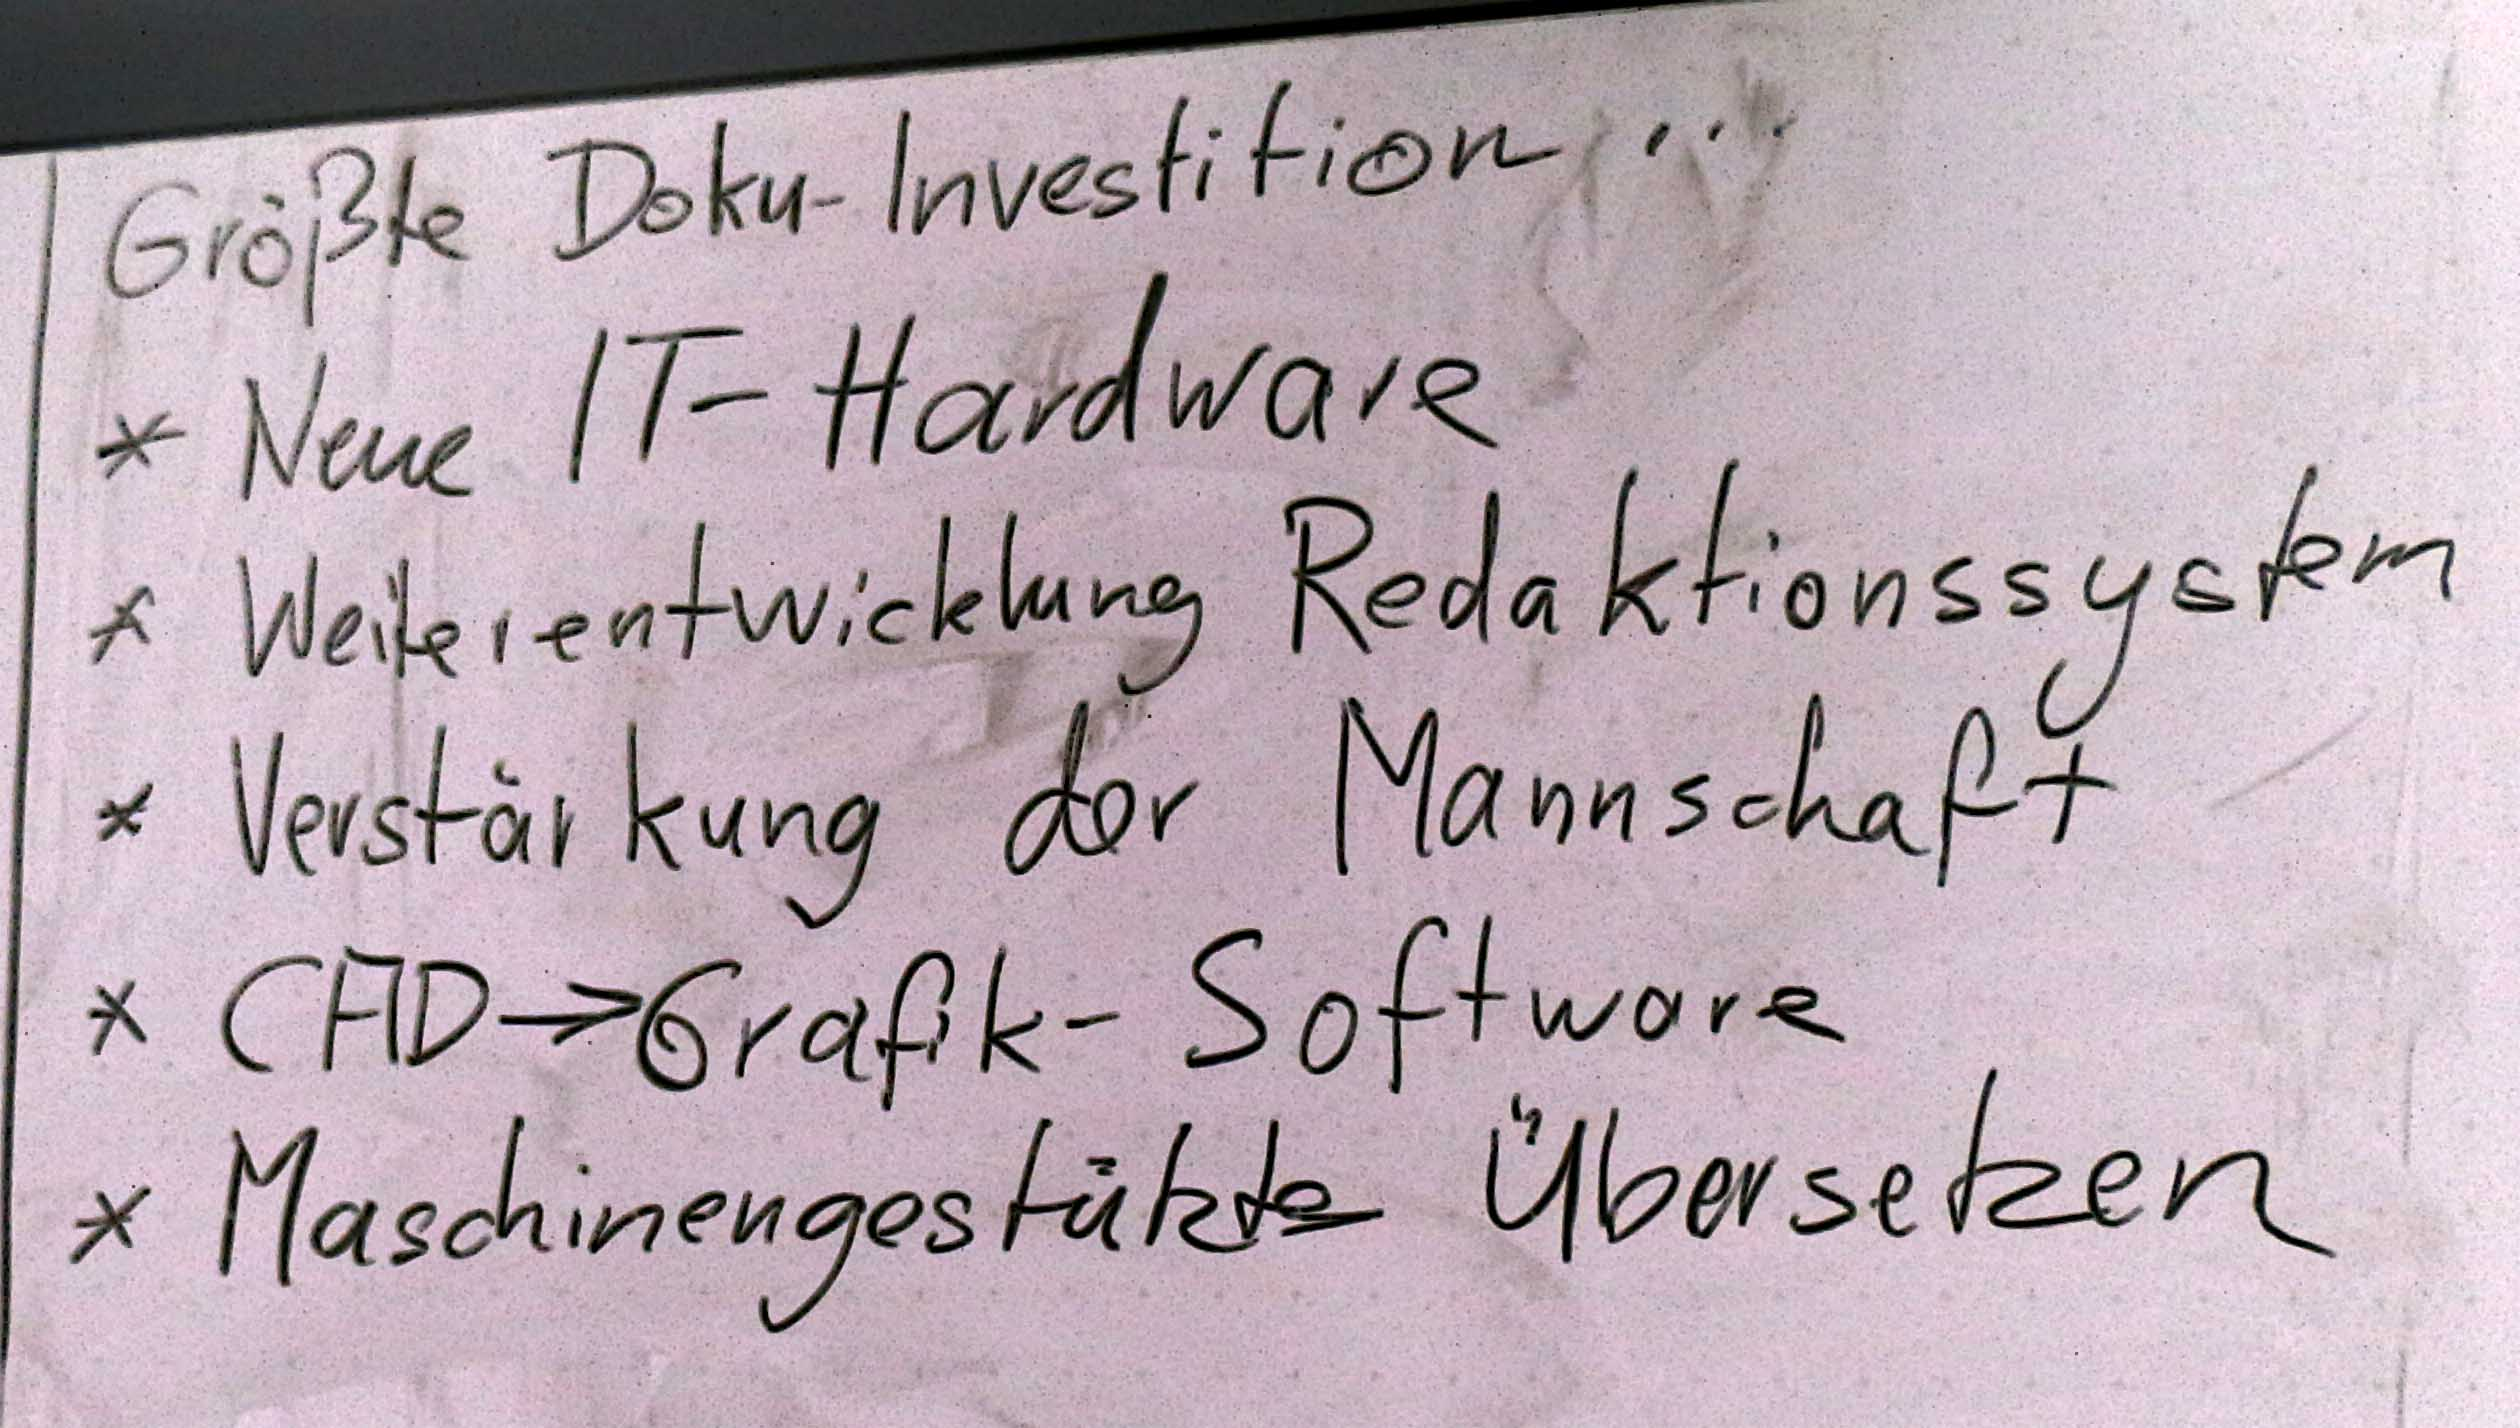 Größte Doku-Investition ...
* Neue IT-Hardware
* Weiterentwicklung Redaktionssystem
* Verstärkung der Mannschaft
* CAD→Grafik-Software
* Maschinengestützte Übersetzen